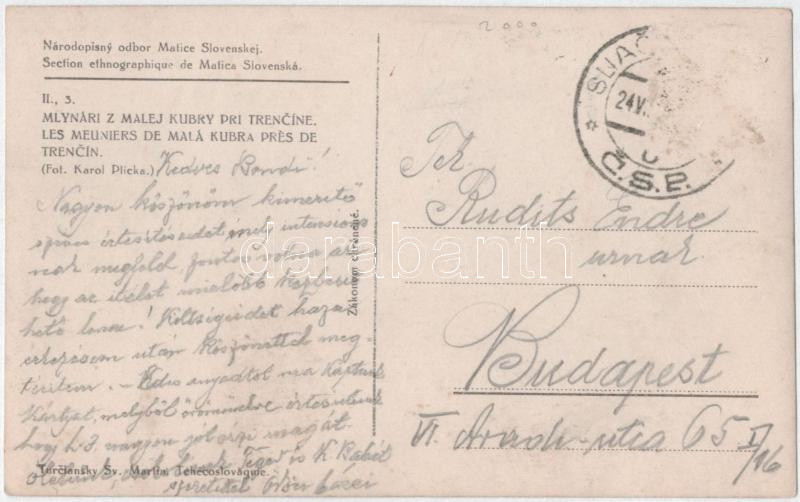 2000
Národopisný odbor Matice Slovenskej.
Section ethnographique de Matica Slovenská.
II., 3.
MLYNÁRI Z MALEJ KUBRY PRI TRENČÍNE.
LES MEUNIERS DE MALÁ KUBRA PRÈS DE
TRENČÍN.
(Fot. Karol Plicka.)
Kedves Bandi!
Nagyon köszönöm kimerítő
értesítésedet, mely
megfelel, fontos volna,
hogy az ítélet mielőbb kézbesít
hető lenne! Költségeidet haza
érkezésem után köszönettel meg-
térítem. – Édes anyádtól ma kaptunk
kártyát, melyből örömmel értesültünk
hogy nagyon jól érzi magát.
Téged és K. Babát
szeretettel
Zákonom chránené.
Turčiansky Sv. Martin, Tchécoslovaquie.
SLIAČ
24.V.
Č.S.P.
Rudits Endre
urnak
Budapest
VI. Aradi-utca 65 I/16
darabanth